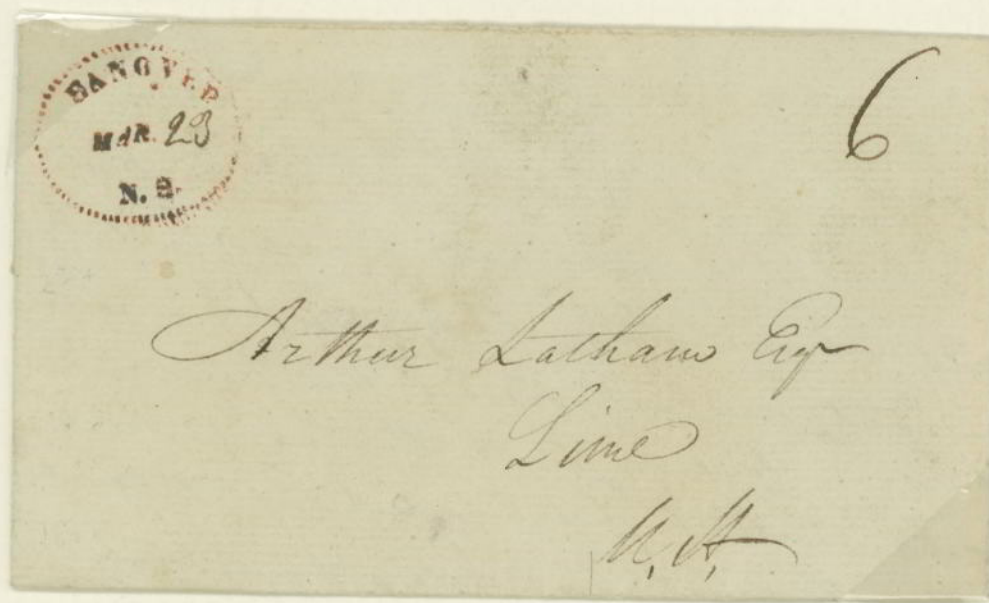 HANOVER
MAR. 23
N. H.
6
Arthur Latham Esqr
Lime
N. H.